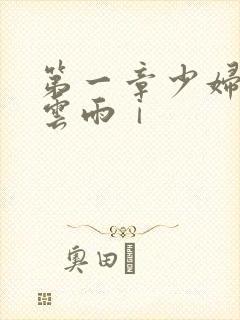 第一章少婦
雲雨｜
奧田